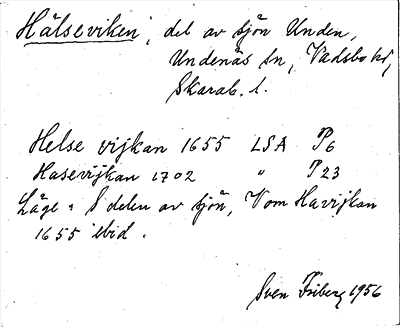 Hälseviken, del av sjön Unden,
Undenäs sn, Vadsbo hd,
Skarab. l.
Helse vijkan 1655 LSA P6
Hasevijkan 1702 " P23
Läge: S delen av sjön, V om Havijkan
1655 ibid.
Sven Friberg 1956